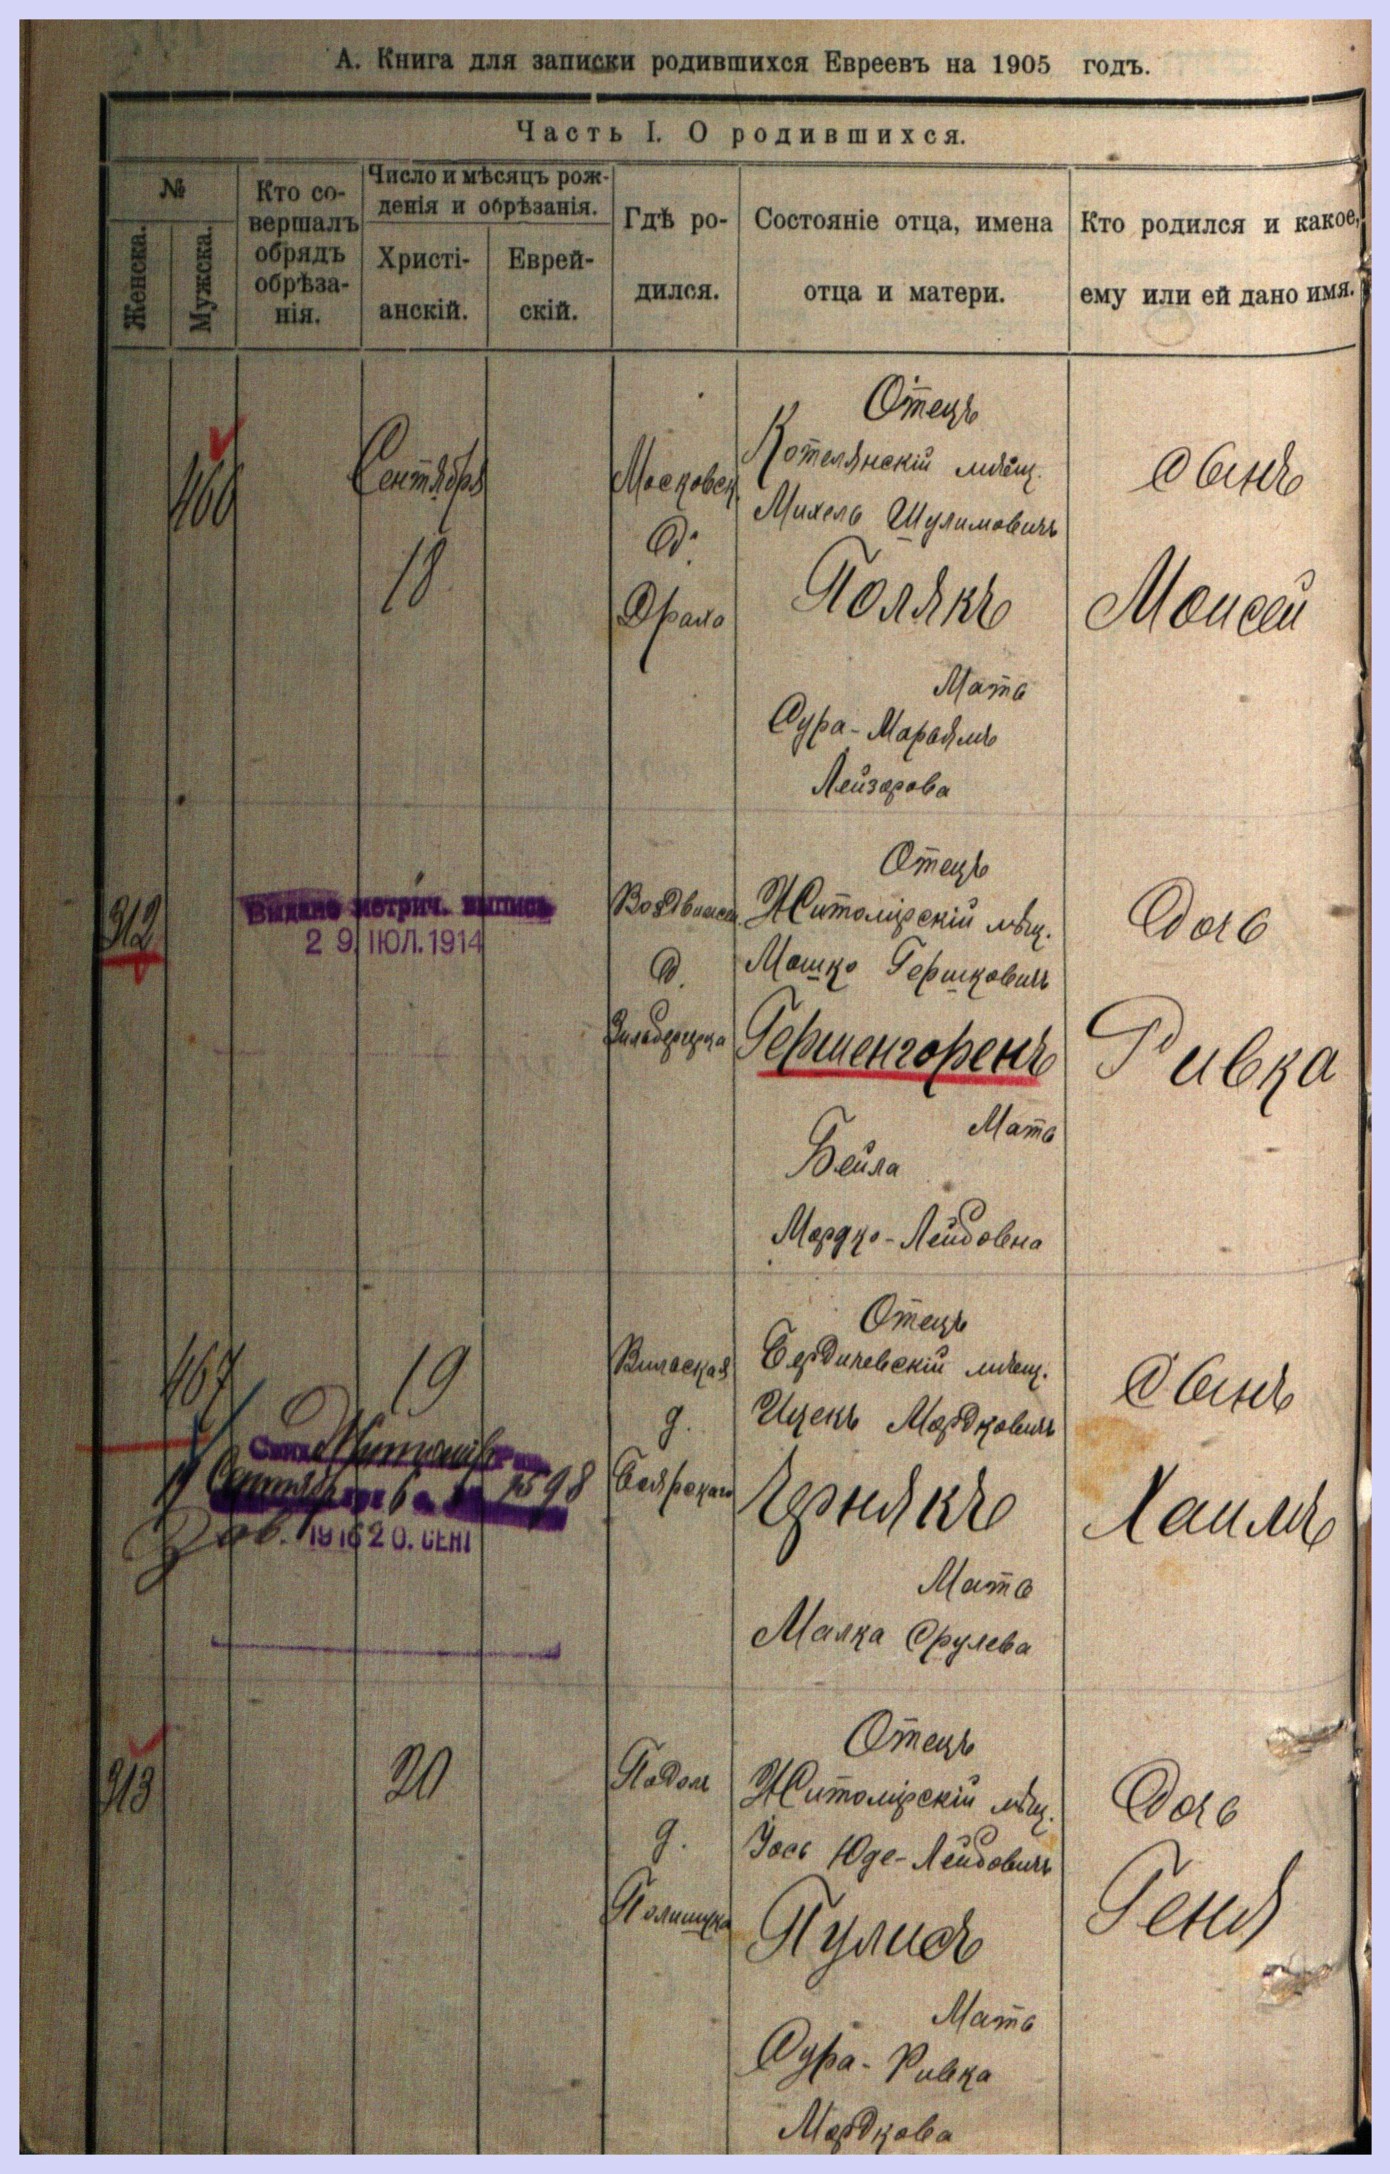 А. Книга для записки родившихся Евреевъ на 1905 годъ.
Часть I. О родившихся.
№
Женска.
Мужска.
Кто со-
вершалъ
обрядъ
обрѣза-
нія.
Число и мѣсяцъ рож-
денія и обрѣзанія.
Христі-
анскій.
Еврей-
скій.
Гдѣ ро-
дился.
Состояніе отца, имена
отца и матери.
Кто родился и какое,
ему или ей дано имя.
466
Сентября
18
Московск.
д.
Отецъ
Котелянскій мѣщ.
Михель Шулимовичъ
Полякъ
Мать
Сура-Марьямъ
Лейзорова
Сынъ
Моисей
312
Выдана метрич. выпись
29. ІЮЛ. 1914
Воздвиженск.
д.
Отецъ
Житомірскій мѣщ.
Мошко Гершковичъ
Гершенгоренъ
Мать
Бейла
Мордко-Лейбовна
Дочь
Ривка
467
19
1598
1916 20. СЕНТ
Вильская
д.
Боярскаго
Отецъ
Бердичевскій мѣщ.
Ицекъ Мордковичъ
Чернякъ
Мать
Малка Срулева
Сынъ
Хаимъ
313
20
Подол
д.
Полищука
Отецъ
Житомірскій мѣщ.
Іось Юде-Лейбовичъ
Пулисъ
Мать
Сура-Ривка
Мордкова
Дочь
Геня